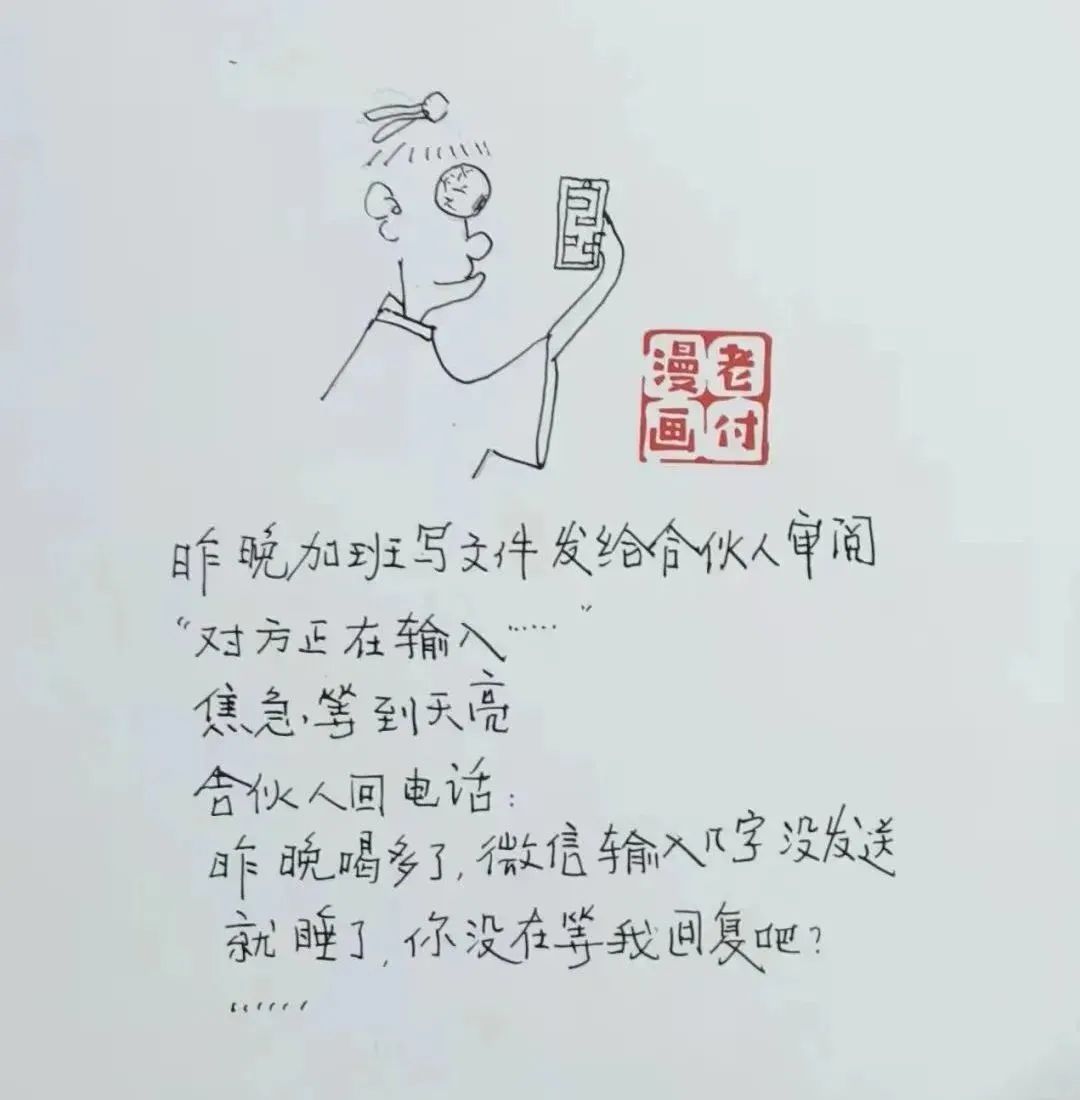 老付
漫画
昨晚加班写文件发给合伙人审阅
“对方正在输入……”
焦急、等到天亮
合伙人回电话：
昨晚喝多了,微信输入几字没发送
就睡了,你没在等我回复吧?
……